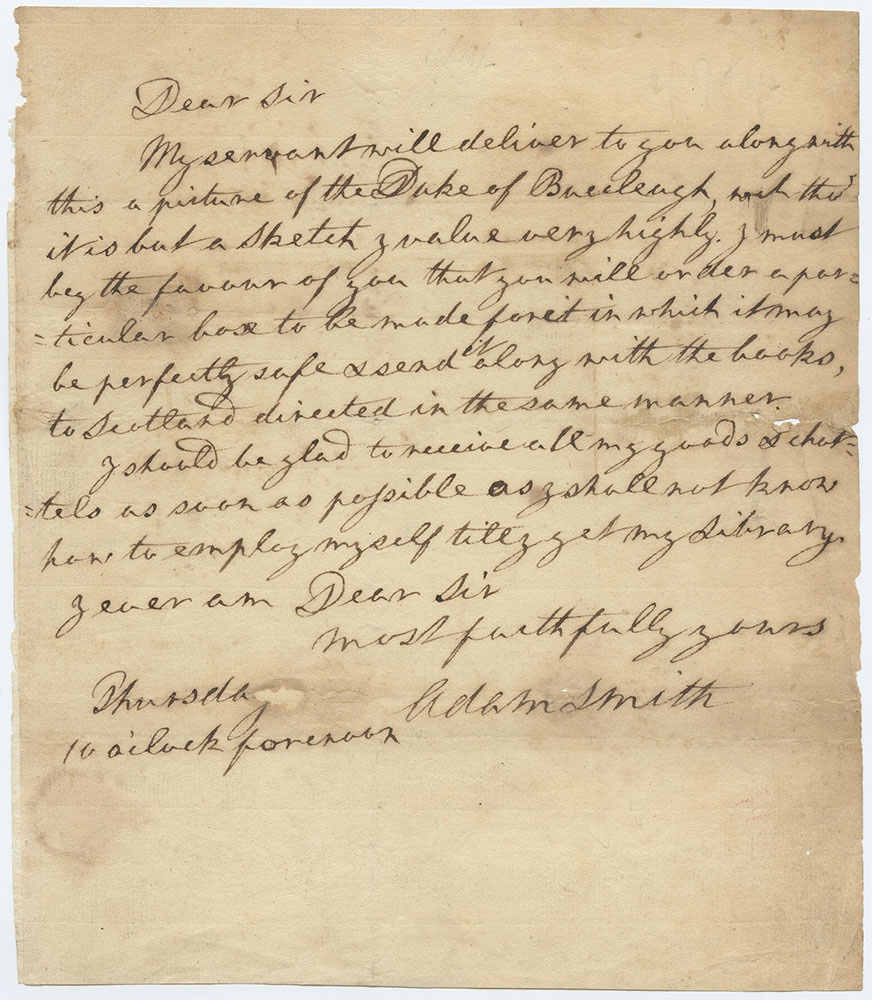 Dear Sir
My servant will deliver to you along with
this a picture of the Duke of Buccleugh, wch tho'
it is but a Sketch I value very highly. I must
beg the favour of you that you will order a par=
=ticular box to be made for it in which it may
be perfectly safe & send it along with the books,
to Scotland directed in the same manner.
I should be glad to receive all my goods & chat=
=tels as soon as possible as I shall not know
how to employ myself till I get my Library.
I ever am Dear Sir
most faithfully yours
Adam Smith
Thursday
10 o'clock forenoon